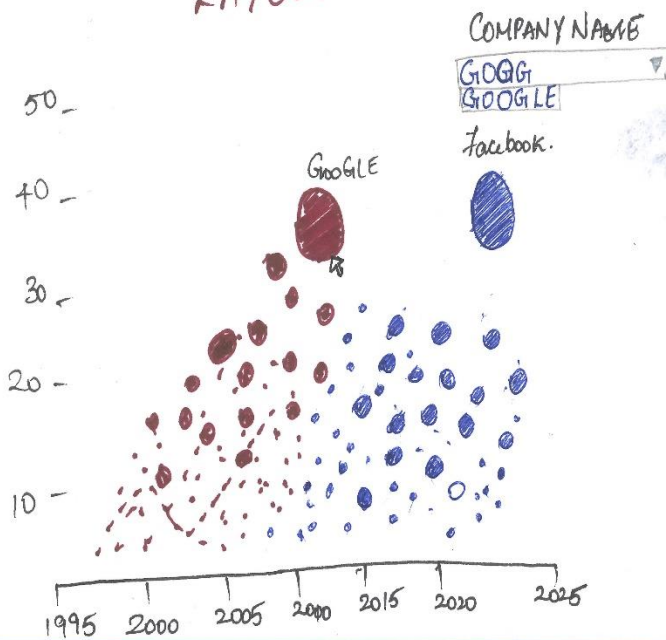 COMPANY NAME
GOOG
GOOGLE
Facebook.
GOOGLE
50
40
30
20
10
1995 2000 2005 2010 2015 2020 2025